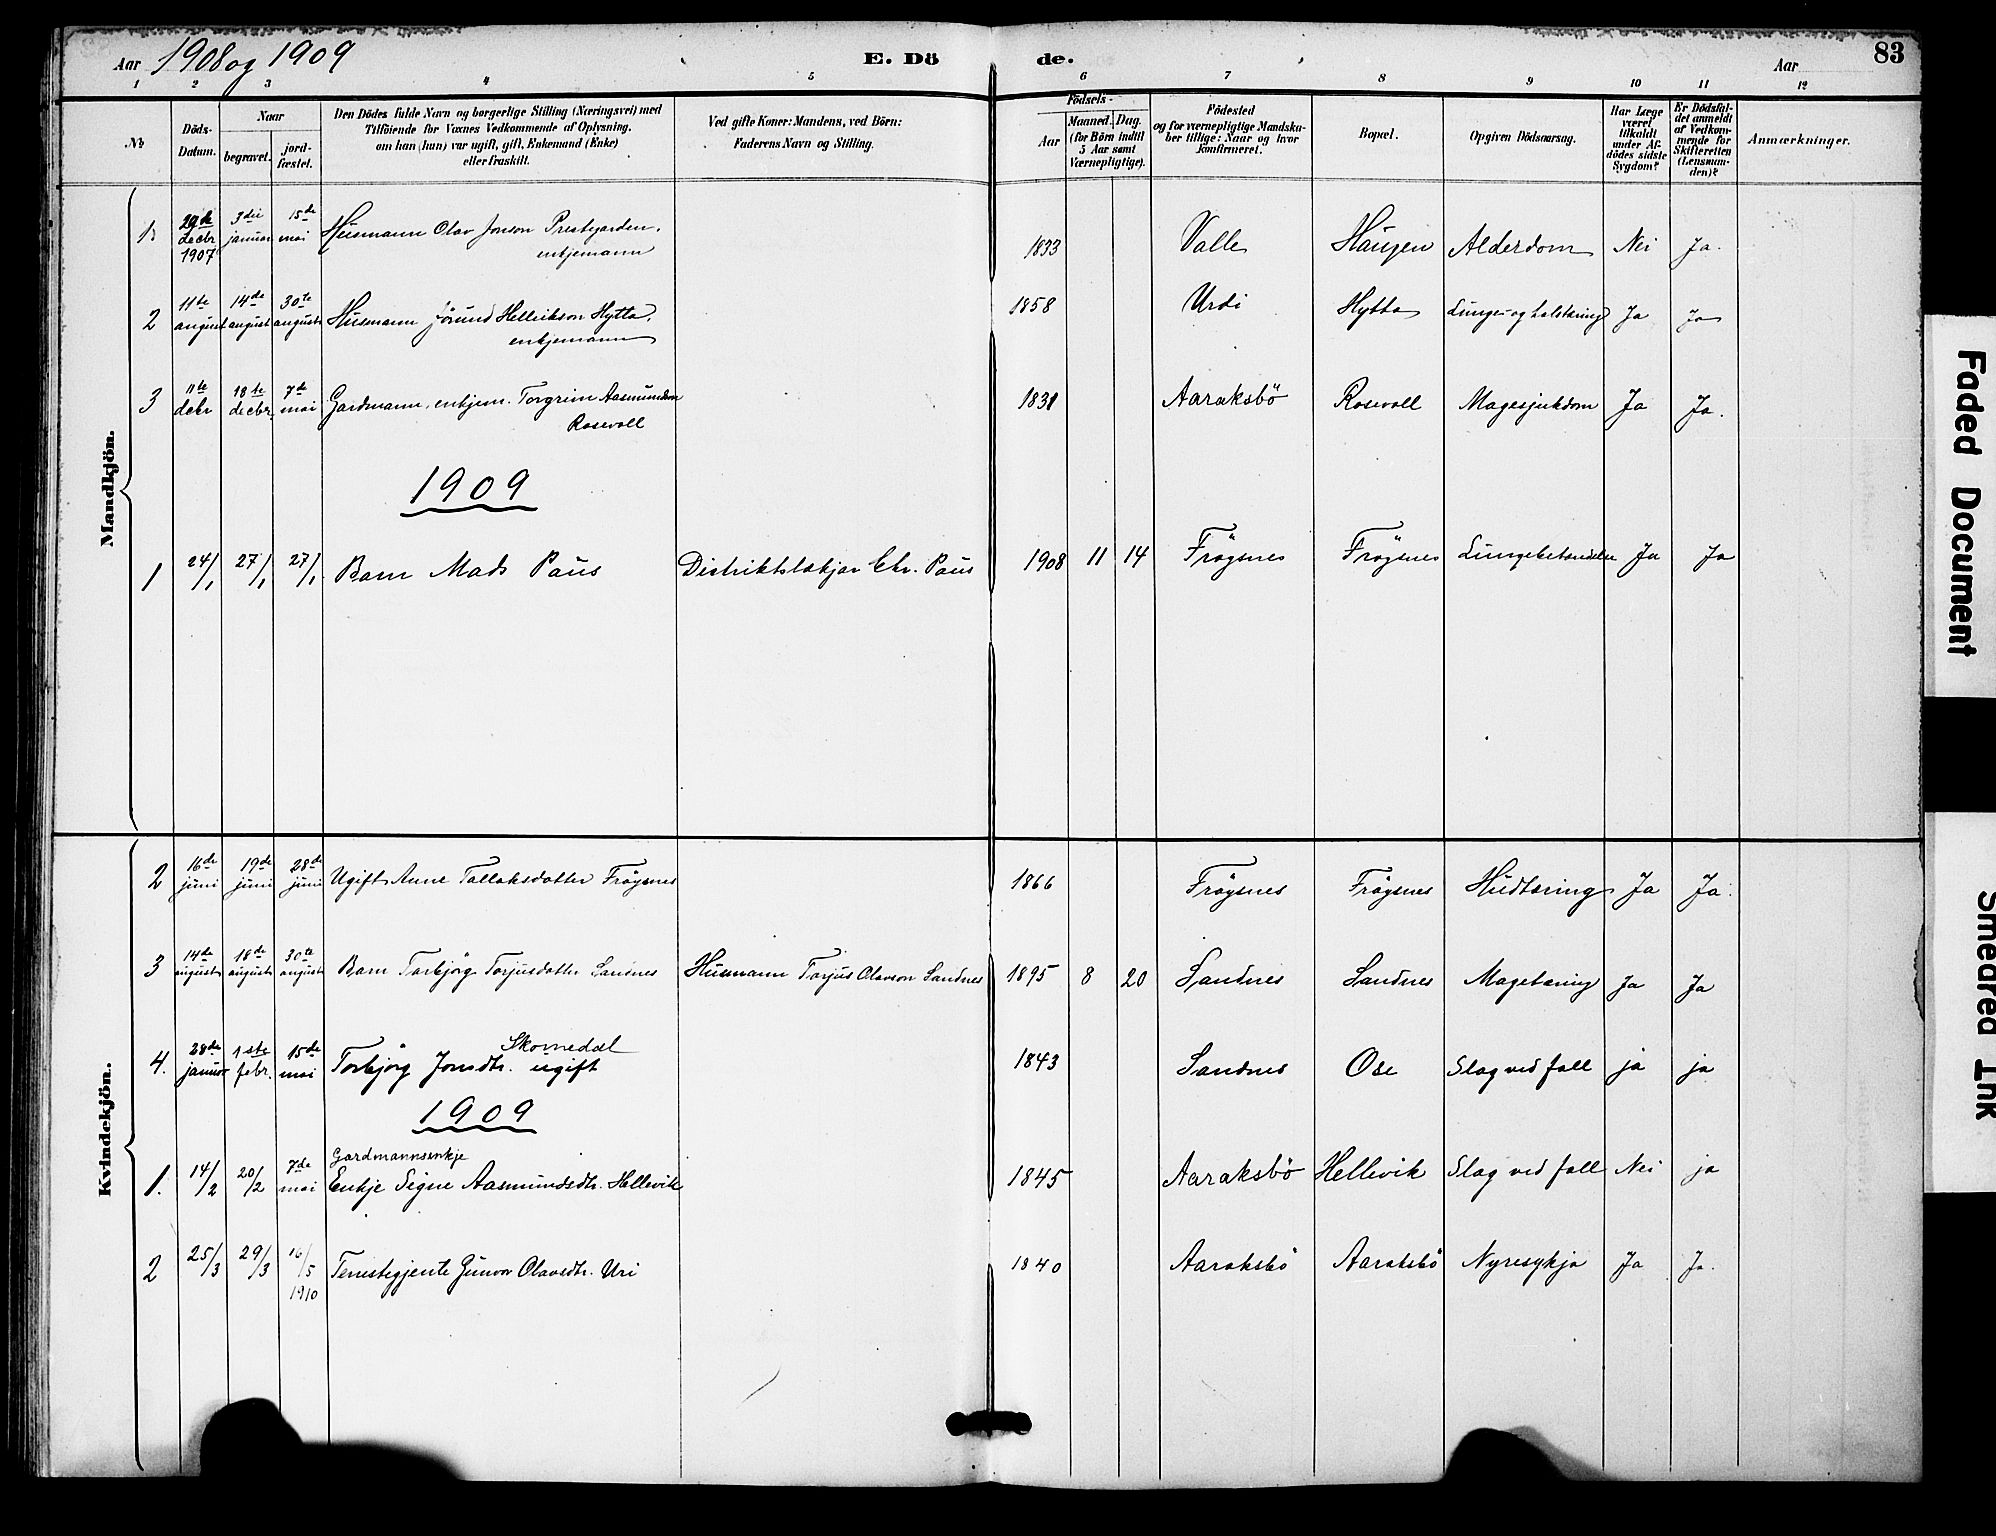 Aar 1908 og 1909 E. Dö de. Aar 83
1 2 3 4 5 6 7 8 9 10 11 12
No
Döds-
Datum.
Naar
begravet.
jord-
fæstet.
Den Dödes fulde Navn og borgerlige Stilling (Næringsvei) med
Tilföiende for Voxnes Vedkommende af Oplysning,
om han (hun) var ugift, gift, Enkemand (Enke)
eller fraskilt.
Ved gifte Koner: Mandens, ved Börn:
Faderens Navn og Stilling.
Födsels-
Aar
Maaned. Dag.
(for Börn indtil
5 Aar samt
Værnepligtige).
Födested
og for værnepligtige Mandska-
ber tillige: Naar og hvor
konfirmeret.
Bopæl.
Opgiven Dödsaarsag.
Har Læge
været
tilkaldt
under Af-
dödes sidste
Sygdom?
Er Dödsfal-
det anmeldt
af Vedkom-
mende for
Skifteretten
(Lensman-
den)?
Anmærkninger.
Mandkjön.
1. decbr 1907 3die januar 15de mai Husmann Olav Jonson Prestegarden, 1833 Valle Haugen Alderdom Nei Ja.
enkjemann
2 11te august 14de august 30te august Husmann Jörund Hellikson Hytta, 1858 Urdi Hytta Lunge- og halstæring Ja Ja
enkjemann
3 11te decbr 18te decbr. 7de mai Gardmann, enkjem. Torgrim Aasmundson 1831 Aaraksbö Rosevoll Magesjukdom Ja Ja.
Rosevoll
1909
1 24/1 27/1 27/1 Barn Mads Paus Distriktslækjar Chr. Paus 1908 11 14 Fröysnes Fröysnes Lungebetændelse Ja Ja
Kvindekjön.
2 16de juni 19de juni 28de juni Ugift Anne Tallaksdotter Fröysnes 1866 Fröysnes Fröysnes Hudtæring Ja Ja.
3 14de august 18de august 30te august Barn Torbjörg Torjusdotter Sandnes Husmann Torjus Olavson Sandnes 1895 8 20 Sandnes Sandnes Magetæring Ja Ja
Skomedal
4. 28de januar 1ste febr. 15de mai Torbjörg Jonsdtr. ugift 1843 Sandnes Ose Slag ved fall ja ja
1909
Gardmannsenkje
1. 14/2 20/2 7de mai Enkje Signe Aasmundsdtr. Hellevik 1845 Aaraksbö Hellevik Slag ved fall Nei ja
2 25/3 29/3 16/5 1910 Tenestegjente Gunvor Olavsdtr. Uri 1840 Aaraksbö Aaraksbö Nyresykja Ja Ja.
Faded Document
Smeared Ink